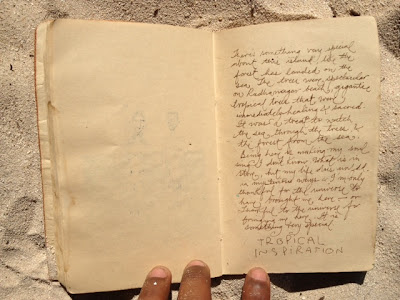 There's something very special
about this island like the
forest has landed on the
sea. The trees were spectacular
on Radhanagar beach, gigantic
tropical trees that were
immediately healing & sacred
It was a treat to watch
the sea through the trees &
the forest from the sea.
Being here is making my soul
sing. I don't know what is in
store, but my life does unfold
in mysterious ways & I'm only
thankful for the universe to
have brought me here
thankful to the universe for
bringing me here. It is
something very special
TROPICAL
INSPIRATION